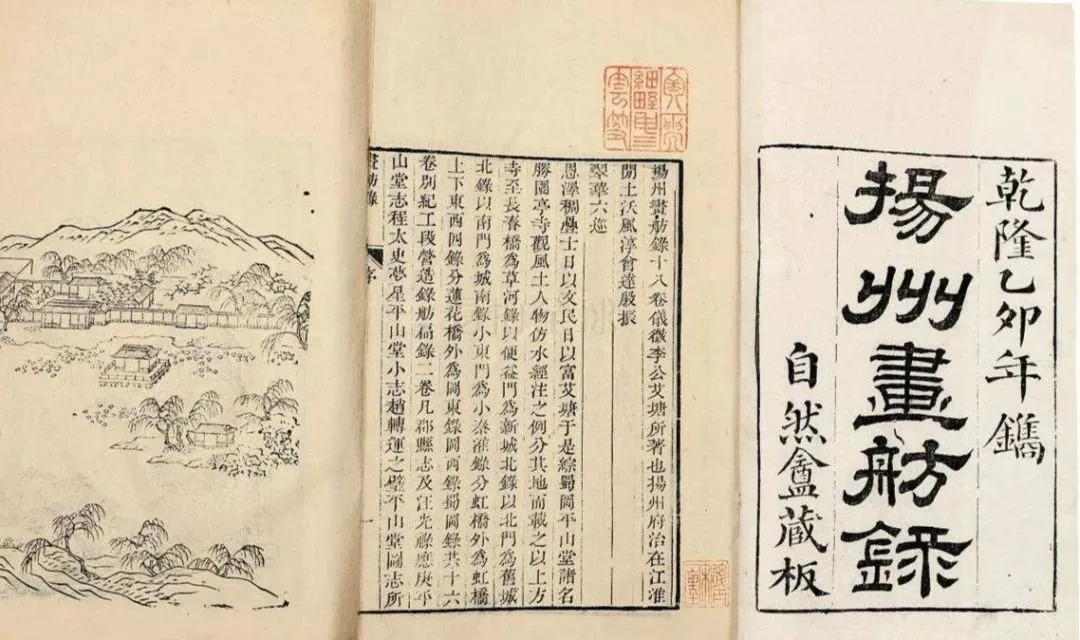 乾隆乙卯年鐫
揚州畫舫錄
自然盦藏板
揚州畫舫錄十八卷儀徵李公艾塘所著也揚州府治在江淮
間土沃風淳會達殷振
翠華六巡
恩澤稠疊士日以文民日以富艾塘于是綜蜀岡平山堂諸名
勝園亭寺觀風土人物仿水經注之例分其地而載之以上方
寺至長春橋為草河錄以便益門為新城北錄以北門為舊城
北錄以南門為城南錄小東門為小秦淮錄分虹橋外為虹橋
上下東西四錄分蓮花橋外為岡東錄岡西錄蜀岡錄共十六
卷別紀工段營造錄舫扁錄二卷凡郡縣志及汪光祿應庚平
山堂志程太史夢星平山堂小志趙轉運之壁平山堂圖志所
畫舫錄
序
一